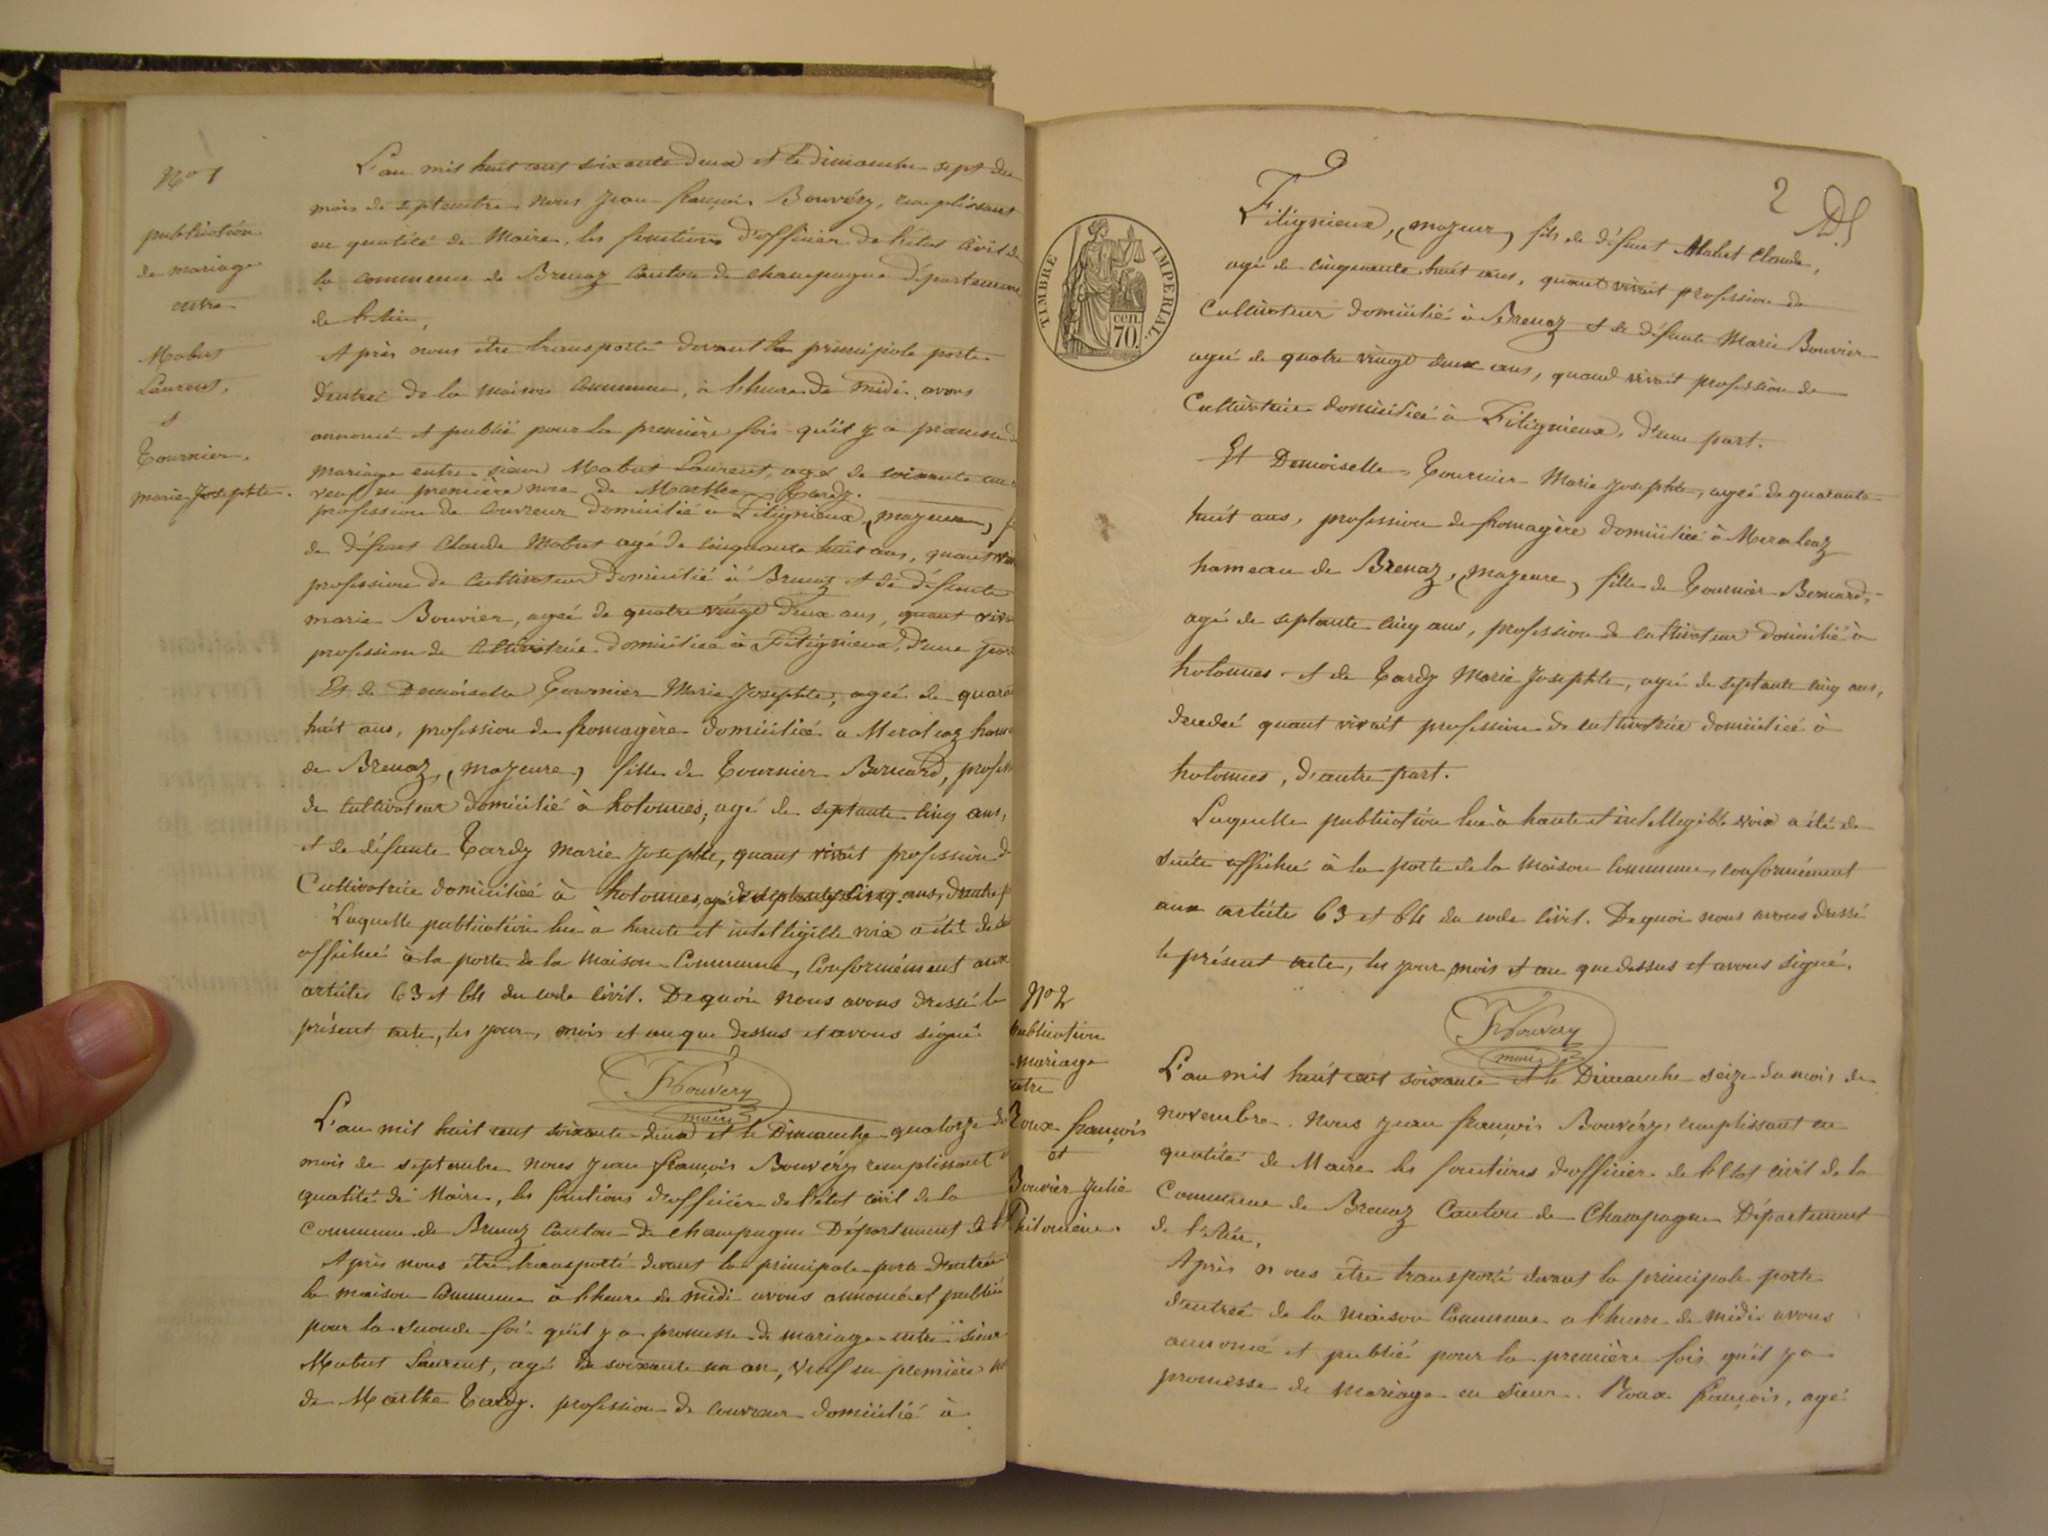 N° 1
publication
de mariage
entre
Mabut
Laurent,
et
Tournier,
marie Josephte.
L'an mil huit cent soixante deux et le dimanche sept du
mois de septembre, nous Jean françois Bouvéry, remplissant
en qualité de Maire, les fonctions d'officier de l'état Civil de
la commune de Brenaz Canton de champagne département
de l'Ain,
Après nous être transporté devant la principale porte
d'entreé de la maison Commune, à l'heure de midi, avons
annoncé et publié pour la première fois qu'il y a promesse de
mariage entre sieur Mabut Laurent, agé de soixante un
veuf en première noce de Marthe Tardy.
profession de Couvreur domicilié à Fitignieux, (majeur)
de défunt Claude Mabut agé de cinquante huit ans, quant
profession de Cultivateur domicilié à Brenaz et de défunte
marie Bouvier, ageé de quatre vingt deux ans, quant
profession de Cultivatrice domiciliée à Fitignieux, d'une part
Et de Demoiselle Tournier Marie Josephte, ageé de
huit ans, profession de fromagère domiciliée a Meraleaz
de Brenaz, (majeure) fille de Tournier Bernard,
de Cultivateur domicilié à hotonnes, agé de septante cinq ans,
et de défunte Tardy Marie Josephte, quant vivait profession
Cultivatrice domiciliéé à hotonnes, ageé de septante cinq ans, d'autre
Laquelle publication lue à haute et intelligible voix a été de
affichée à la porte de la Maison Commune, Conformément aux
articles 63 et 64 du code Civil. De quoi nous avons dressé le
présent acte, les jour, mois et an que dessus et avons signé.
JFBouvery
maire
L'an mil huit cent soixante deux et le Dimanche quatorze du
mois de septembre nous Jean françois Bouvéry remplissant
qualité de Maire, les fonctions d'officier de l'état civil de la
Commune de Brenaz Canton de Champagne Département de
Après nous être transporté devant la principale porte d'entreé
la maison Commune à l'heure de midi avons annoncé et publié
pour la seconde foi qu'il y a promesse de mariage entre sieur
Mabut Laurent, agé de soixante un an, veuf en première
de Marthe Tardy. profession de Couvreur domicilié à
2
TIMBRE IMPERIAL.
cen.
70.
Fitignieux, (majeur) fils de défunt Mabut Claude,
agé de cinquante huit ans, quant vivait profession de
Cultivateur domicilié à Brenaz et de défunte Marie Bouvier
ageé de quatre vingt deux ans, quand vivait profession de
Cultivatrice domiciliée à Fitignieux, d'une part.
Et Demoiselle Tournier Marie Josephte, ageé de quarante
huit ans, profession de fromagère domiciliée à Meraleaz
hameau de Brenaz, (majeure) fille de Tournier Bernard,
agé de septante cinq ans, profession de cultivateur domicilié à
hotonnes et de Tardy Marie Josephte, ageé de septante cinq ans,
quant vivait profession de cultivatrice domiciliée à
hotonnes, d'autre part.
Laquelle publication lue à haute et intellegible voix a été de
suite affichée à la porte de la Maison Commune, conformément
aux article 63 et 64 du code Civil. De quoi nous avons dressé
le présent acte, les jour, mois et an que dessus et avons signé.
JFBouvery
maire
N° 2
publication
mariage
Roux françois
et
Bouvier Julie
L'an mil huit cent soixante et le Dimanche seize du mois de
novembre. Nous Jean françois Bouvéry, remplissant en
qualité de Maire les fonctions d'officier de l'Etat civil de la
Commune de Brenaz Canton de Champagne Département
de l'Ain,
Après nous être transporté devant la principale porte
d'entreé de la maison Commune a l'heure de midi avons
annoncé et publié pour la première fois qu'il y a
promesse de mariage en sieur. Roux françois, agé